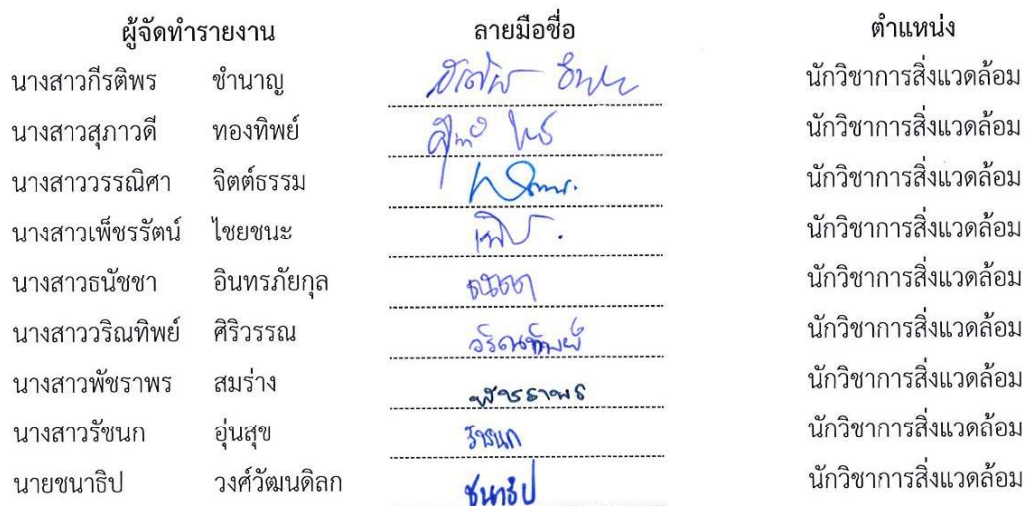 ผู้จัดทำรายงาน ลายมือชื่อ ตำแหน่ง
นางสาวกีรติพร ชำนาญ นักวิชาการสิ่งแวดล้อม
นางสาวสุภาวดี ทองทิพย์ นักวิชาการสิ่งแวดล้อม
นางสาววรรณิศา จิตต์ธรรม นักวิชาการสิ่งแวดล้อม
นางสาวเพ็ชรรัตน์ ไชยชนะ นักวิชาการสิ่งแวดล้อม
นางสาวธนัชชา อินทรภัยกุล ธนัชชา นักวิชาการสิ่งแวดล้อม
นางสาววริณทิพย์ ศิริวรรณ วริณทิพย์ นักวิชาการสิ่งแวดล้อม
นางสาวพัชราพร สมร่าง พัชราพร นักวิชาการสิ่งแวดล้อม
นางสาวรัชนก อุ่นสุข รัชนก นักวิชาการสิ่งแวดล้อม
นายชนาธิป วงศ์วัฒนดิลก ชนาธิป นักวิชาการสิ่งแวดล้อม